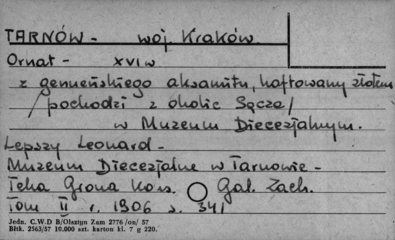 TARNÓW - woj Kraków
Ornat - XVI w
z genueńskiego aksamitu, haftowany złotem
/pochodzi z okolic Sącza/
w Muzeum Diecezjalnym.
Lepszy Leonard -
Muzeum Diecezjalne w Tarnowie -
Teka Grona Kons. Gal. Zach.
Tom II r. 1906 s. 341
Jedn. C.W.D B/Olsztyn Zam 2776/on/ 57
Błtk. 2563/57 10.000 szt. karton kl. 7 g 220.